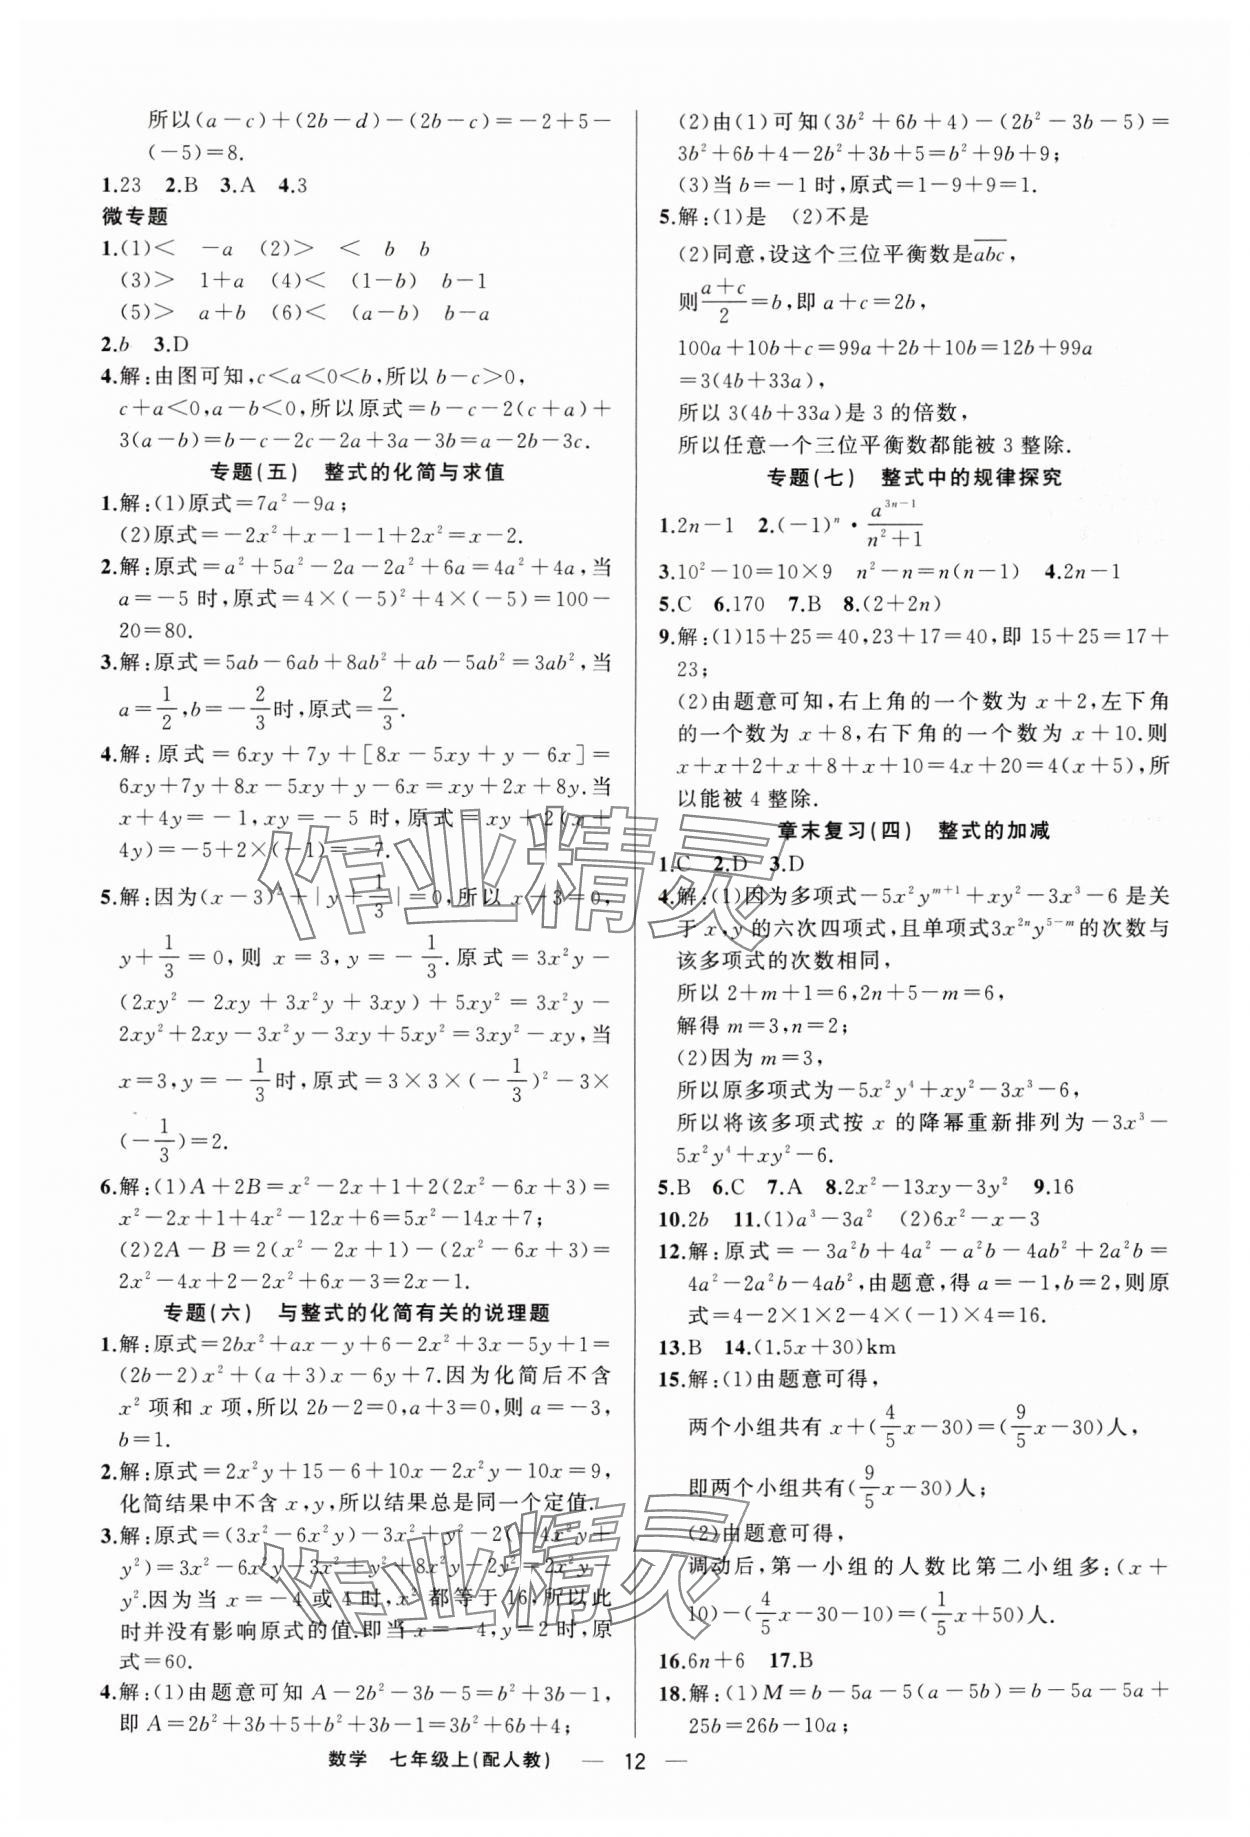 所以(a-c)+(2b-d)-(2b-c)=-2+5-
(-5)=8.
1.23 2.B 3.A 4.3
微专题
1.(1)< -a (2)> < b b
(3)> 1+a (4)< (1-b) b-1
(5)> a+b (6)< (a-b) b-a
2.b 3.D
4.解:由图可知,c<a<0<b,所以 b-c>0,
c+a<0,a-b<0,所以原式=b-c-2(c+a)+
3(a-b)=b-c-2c-2a+3a-3b=a-2b-3c.
专题(五) 整式的化简与求值
1.解:(1)原式=7a²-9a;
(2)原式=-2x²+x-1-1+2x²=x-2.
2.解:原式=a²+5a²-2a-2a²+6a=4a²+4a,当
a=-5 时,原式=4×(-5)²+4×(-5)=100-
20=80.
3.解:原式=5ab-6ab+8ab²+ab-5ab²=3ab²,当
a=1/2,b=-2/3时,原式=2/3.
4.解:原式=6xy+7y+[8x-5xy+y-6x]=
6xy+7y+8x-5xy+y-6x=xy+2x+8y.当
x+4y=-1,xy=-5 时,原式=xy+2(x+
4y)=-5+2×(-1)=-7.
5.解:因为(x-3)²+|y+1/3|=0,所以 x-3=0,
y+1/3=0,则 x=3,y=-1/3.原式=3x²y-
(2xy²-2xy+3x²y+3xy)+5xy²=3x²y-
2xy²+2xy-3x²y-3xy+5xy²=3xy²-xy,当
x=3,y=-1/3时,原式=3×3×(-1/3)²-3×
(-1/3)=2.
6.解:(1)A+2B=x²-2x+1+2(2x²-6x+3)=
x²-2x+1+4x²-12x+6=5x²-14x+7;
(2)2A-B=2(x²-2x+1)-(2x²-6x+3)=
2x²-4x+2-2x²+6x-3=2x-1.
专题(六) 与整式的化简有关的说理题
1.解:原式=2bx²+ax-y+6-2x²+3x-5y+1=
(2b-2)x²+(a+3)x-6y+7.因为化简后不含
x²项和 x 项,所以 2b-2=0,a+3=0,则 a=-3,
b=1.
2.解:原式=2x²y+15-6+10x-2x²y-10x=9,
化简结果中不含 x,y,所以结果总是同一个定值.
3.解:原式=(3x²-6x²y)-3x²+y²-2(-4x²y+
y²)=3x²-6x²y-3x²+y²+8x²y-2y²=2x²y-
y².因为当 x=-4 或 4 时,x²都等于 16,所以此
时并没有影响原式的值.即当 x=-4,y=2 时,原
式=60.
4.解:(1)由题意可知 A-2b²-3b-5=b²+3b-1,
即 A=2b²+3b+5+b²+3b-1=3b²+6b+4;
(2)由(1)可知(3b²+6b+4)-(2b²-3b-5)=
3b²+6b+4-2b²+3b+5=b²+9b+9;
(3)当 b=-1 时,原式=1-9+9=1.
5.解:(1)是 (2)不是
(2)同意,设这个三位平衡数是a̅b̅c̅,
则(a+c)/2=b,即 a+c=2b,
100a+10b+c=99a+2b+10b=12b+99a
=3(4b+33a),
所以 3(4b+33a)是 3 的倍数,
所以任意一个三位平衡数都能被 3 整除.
专题(七) 整式中的规律探究
1.2n-1 2.(-1)ⁿ·a³ⁿ⁻¹/(n²+1)
3.10²-10=10×9 n²-n=n(n-1) 4.2n-1
5.C 6.170 7.B 8.(2+2n)
9.解:(1)15+25=40,23+17=40,即 15+25=17+
23;
(2)由题意可知,右上角的一个数为 x+2,左下角
的一个数为 x+8,右下角的一个数为 x+10.则
x+x+2+x+8+x+10=4x+20=4(x+5),所
以能被 4 整除.
章末复习(四) 整式的加减
1.C 2.D 3.D
4.解:(1)因为多项式-5x²yᵐ⁺¹+xy²-3x³-6 是关
于 x,y 的六次四项式,且单项式3x²ⁿy⁵⁻ᵐ的次数与
该多项式的次数相同,
所以 2+m+1=6,2n+5-m=6,
解得 m=3,n=2;
(2)因为 m=3,
所以原多项式为-5x²y⁴+xy²-3x³-6,
所以将该多项式按 x 的降幂重新排列为-3x³-
5x²y⁴+xy²-6.
5.B 6.C 7.A 8.2x²-13xy-3y² 9.16
10.2b 11.(1)a³-3a² (2)6x²-x-3
12.解:原式=-3a²b+4a²-a²b-4ab²+2a²b=
4a²-2a²b-4ab²,由题意,得 a=-1,b=2,则原
式=4-2×1×2-4×(-1)×4=16.
13.B 14.(1.5x+30)km
15.解:(1)由题意可得,
两个小组共有 x+(4/5x-30)=(9/5x-30)人,
即两个小组共有(9/5x-30)人;
(2)由题意可得,
调动后,第一小组的人数比第二小组多:(x+
10)-(4/5x-30-10)=(1/5x+50)人.
16.6n+6 17.B
18.解:(1)M=b-5a-5(a-5b)=b-5a-5a+
25b=26b-10a;
数学 七年级上(配人教) — 12 —
作业精灵
作业精灵